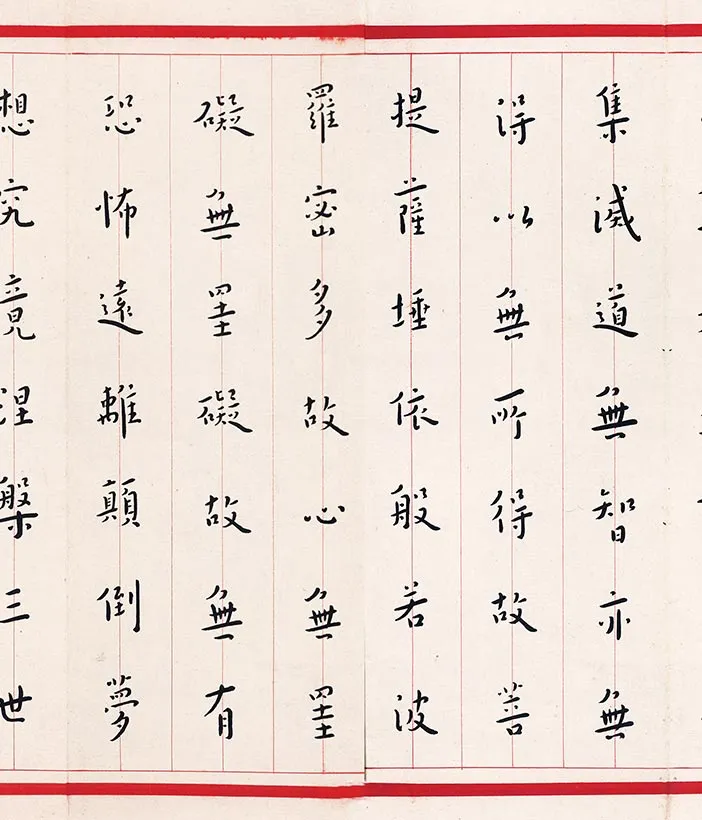 集滅道無智亦無
得以無所得故菩
提薩埵依般若波
羅密多故心無罣
礙無罣礙故無有
恐怖遠離顛倒夢
想究竟涅槃三世